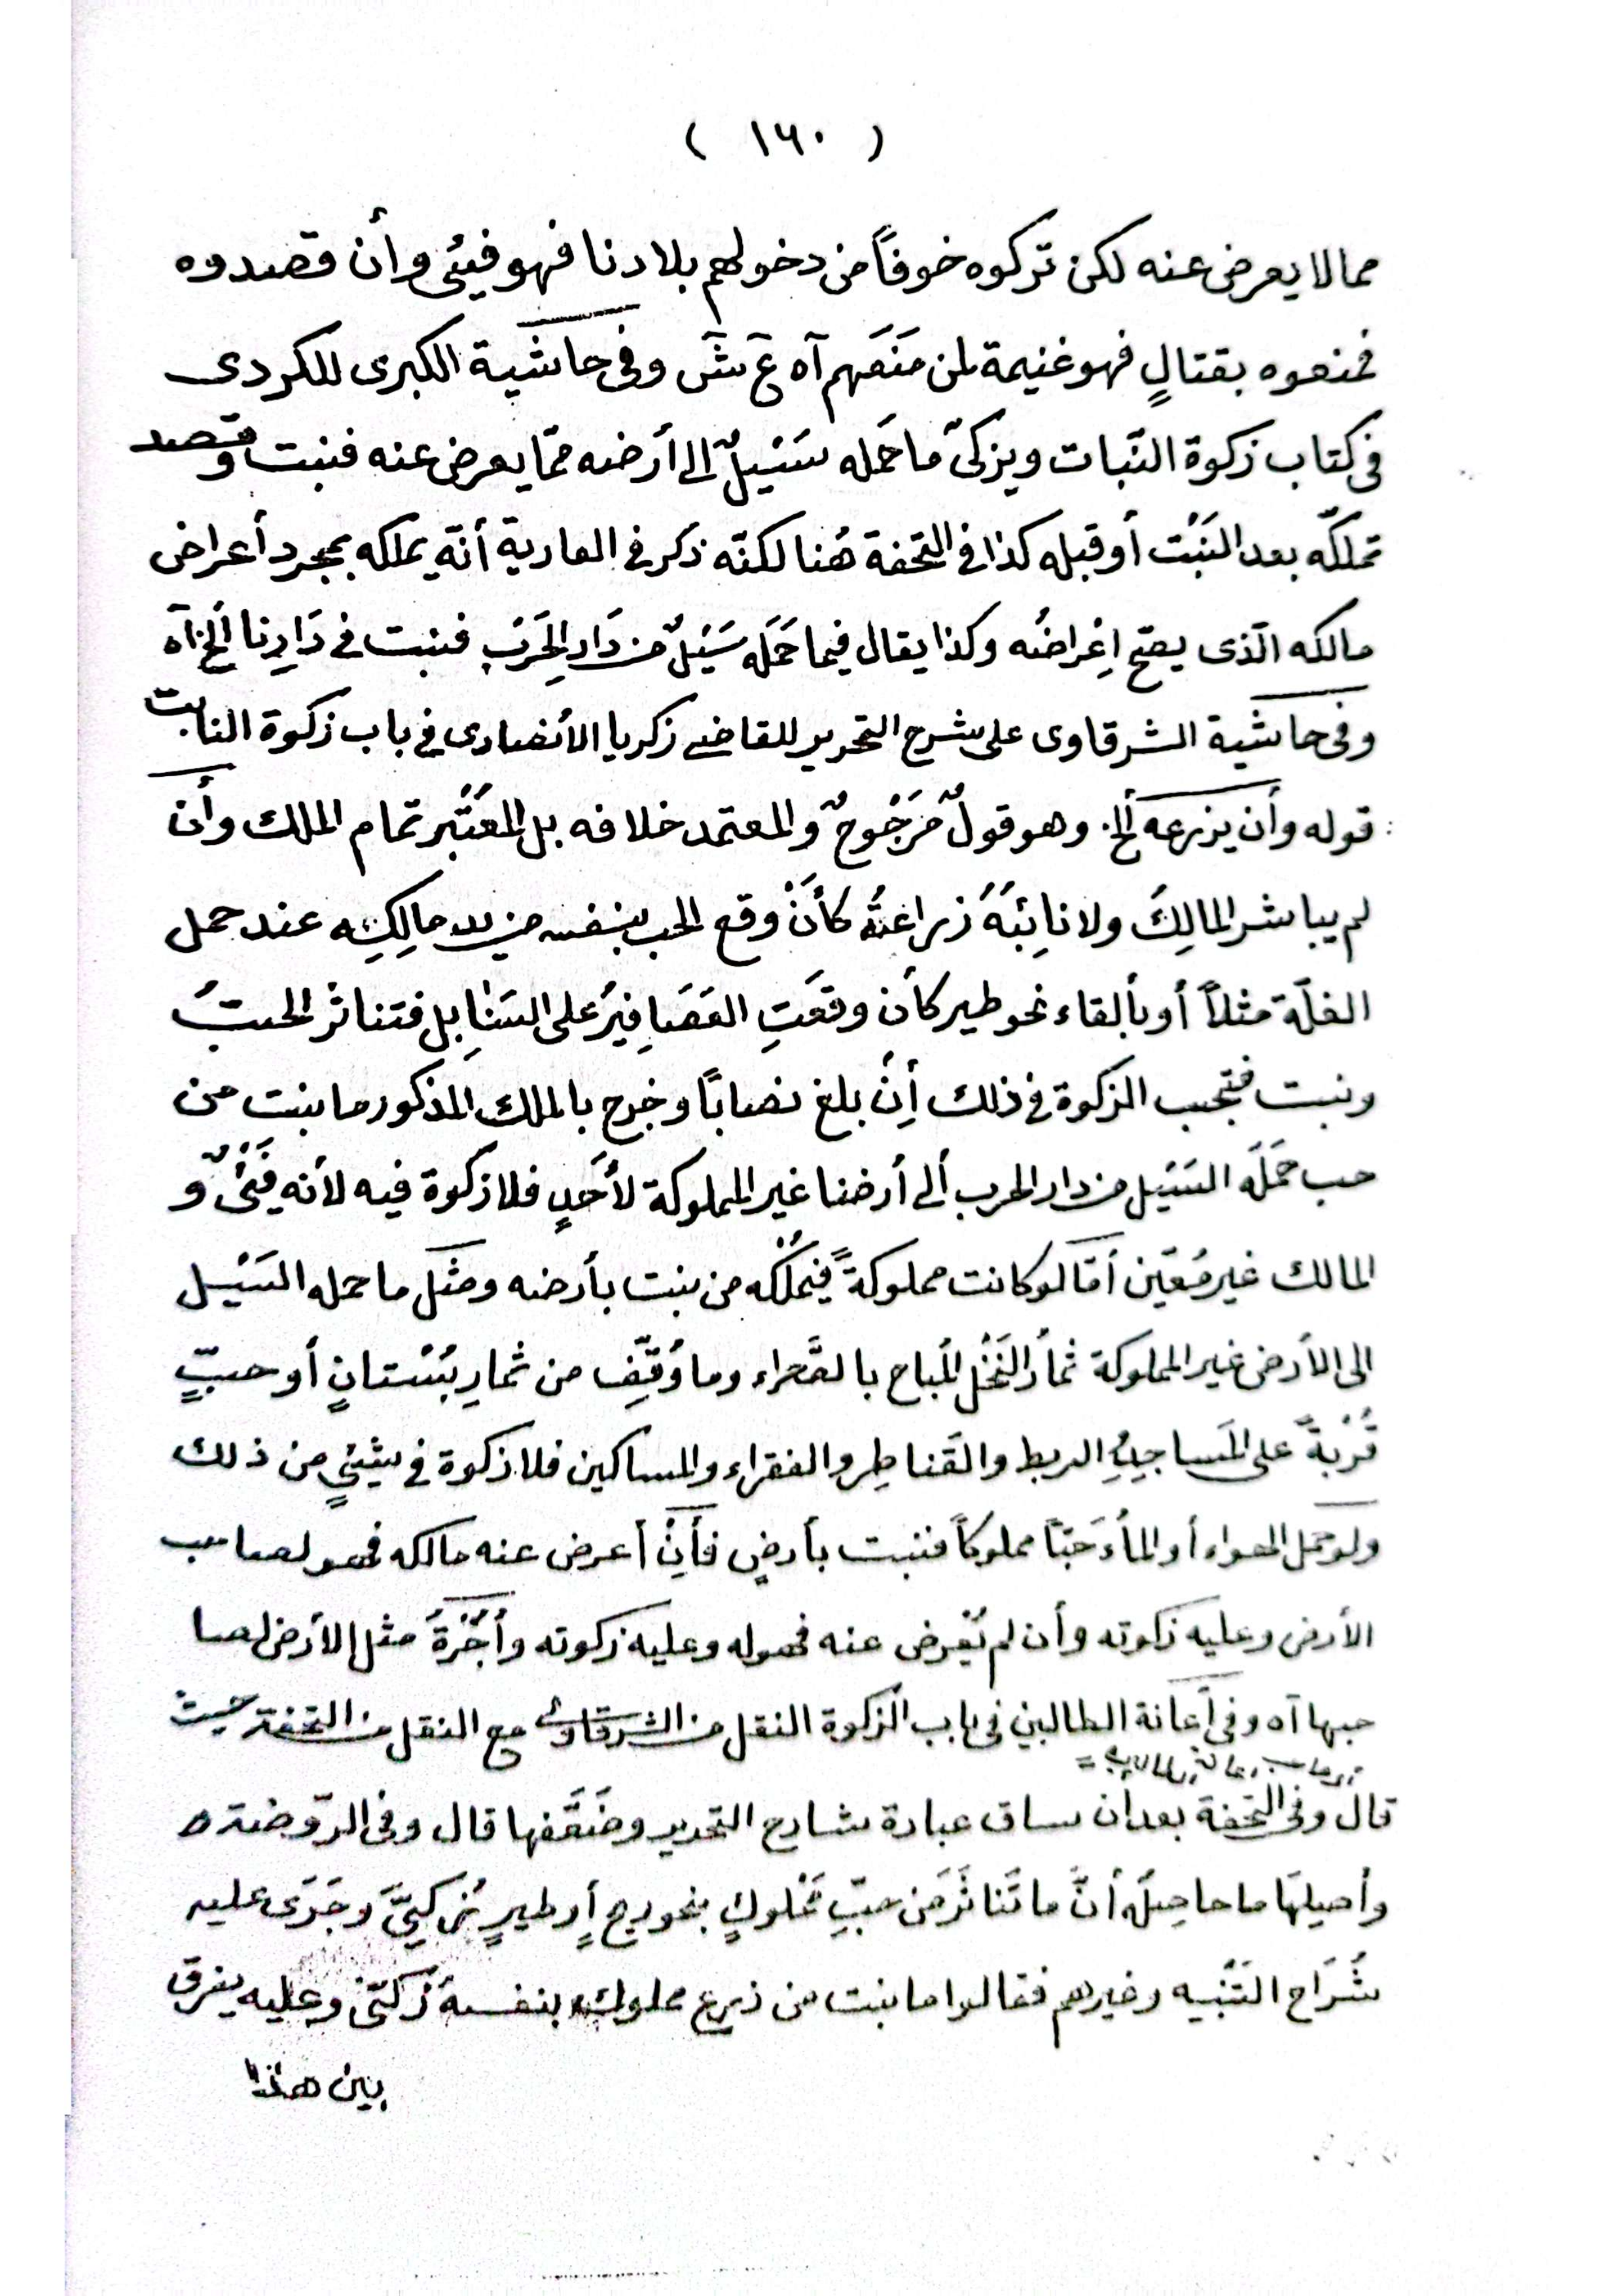 ( ١٦٠ )
مما لا يعرض عنه لكن تركوه خوفاً من دخولهم بلادنا فهو فيئى وأن قصدوه
فمنعوه بقتالٍ فهو غنيمة لمن مَنَعَهم آه عَ شَ وفى حاشية الكبرى للكردى
فى كتاب زكوة النّبات ويزكىّ ما حَمله سَيْلٌ الى أرضه ممّا يعرض عنه فنبت وقصد
تملكّه بعد النَبْت أو قبله كذا فى التحفة هُنا لكنّه ذكر فى العارية أنّه يملكه بمجرد أعراض
مالكه الّذى يصّح اِعْراضُه وكذا يقال فيما حَمَلَه سَيْلٌ من دَار الحَرَب فنبت فى دَارِنا ألخ آه
وفى حاشية الشرقاوى على شرح التحرير للقاضى زكريا الأنصارى فى باب زكوة النابت
قوله وأن يزرعه ألخ. وهو قولٌ مَرَجْوحٌ والمعتمد خلافه بل المعْتَبر تمام الملك وأن
لم يباشر المالِكَ ولا نائِبَهُ زراعتُه كأَنْ وقع الحب بنفسه من يد مالِكِه عند حمل
الغلّة مثلاً أو بألقاء نحو طير كأن وقعَتِ العَصَافِيرُ على السَنٰابِل فتناثر الحبُ
ونبت فتجب الزكوة فى ذلك أِنْ بلغ نصابًا وخرج بالملك المذكور ما نبت من
حب حَمَلَه السَيْل من دار الحرب ألى أرضنا غير المملوكة لأَحَدٍ فلا زكوة فيه لأنه فَيْئٌ و
المالك غير مُعَيّن أمّا لو كانت مملوكةً فيَمْلُكْه من نبت بأرضه ومثَل ما حمله السَيْل
الى الأرض غير المملوكة ثمارُ النَخْل المُباح بالصَّحراء وما وُقِّف من ثمارِ بُسْتانٍ أو حبٍّ
قُرْبةً على المَساجِدِ الربط والقَناطِر والفقراء والمساكين فلا زكوة فى شيْئٍ من ذلك
ولو حمل الهواء أو الماُء حَبّاً مملوكاً فنبت بأرضٍ فأَنِْ أعرض عنه مالكه فهو لصاحب
الأرض وعليه زكوته وأن لم يُعْرض عنه فهو له وعليه زكوته وأُجْرَةُ مثل الأرض لصا
حبها آه وفى أعانة الطالبين فى باب الزكوة النقل من الشرقاوى مع النقل من التحفة حيث
قال وفى التحفة بعد ان ساق عبارة شارح التحرير وضَعَّفها قال وفى الرّوضة
وأصيلهَا ما حاصِلُه أنَّ ما تَناثَر مَن حبِّ مَمْلوكٍ بنحو ريح أو طيرٍ زكىَّ وجَرَى عليه
شُرَاح التَنْبيه وغيرهم فقالوا ما نبت من زرع مملوك بنفسه زكىّ وعليه يفرق
بين هذا